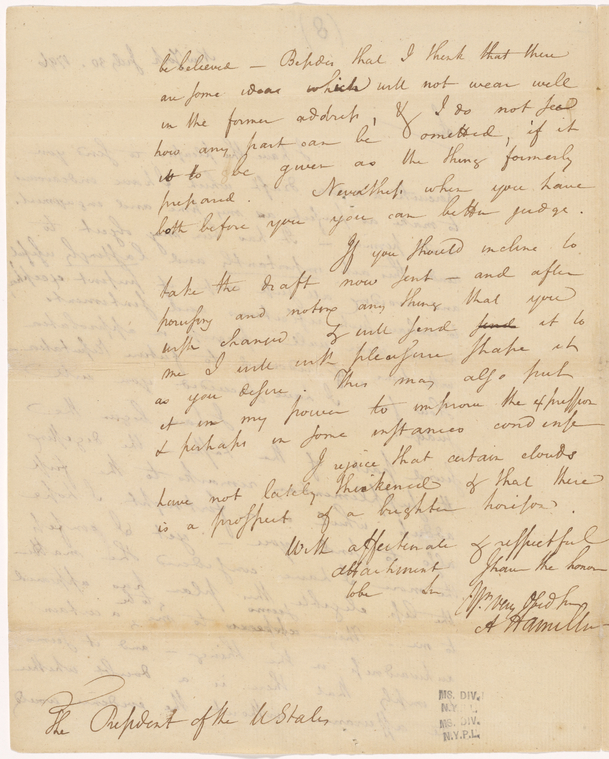 be believed — Besides that I think that there
are some ideas which will not wear well
in the former address, & I do not see
how any part can be omitted, if it
is to be given as the thing formerly
prepared. Nevertheless when you have
both before you you can better judge.
If you should incline to
take the draft now sent — and after
perusing and noting any thing that you
wish changed & will send send it to
me I will with pleasure shape it
as you desire. This may also put
it in my power to improve the expression
& perhaps in some instances condense
I rejoice that certain clouds
have not lately thickened & that there
is a prospect of a brighter horison.
With affectionate & respectful
attachment I have the honor
to be Sr.
Yr. Very Obed Ser
A Hamilton
The President of the U States
MS. DIV.
N.Y.P.L.
MS. DIV.
N.Y.P.L.